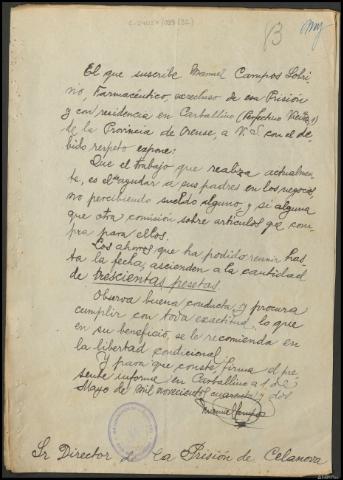 B
El que suscribe Manuel Campos Sobri-
no Farmacéutico, exrecluso de esa Prisión
y con residencia en Carballino (Perfectino Vieitez, 1)
de la Provincia de Orense, a V.S con el de-
bido respeto expone:
Que el trabajo que realiza actualmen-
te, es el ayudar a sus padres en los negocios,
no percibiendo sueldo alguno, y si alguna
que otra comisión sobre artículos que com-
pra para ellos.
Los ahorros que ha podido reunir has-
ta la fecha, ascienden a la cantidad
de trescientas pesetas
Observa buena conducta y procura
cumplir con toda exactitud lo que
en su beneficio, se le recomienda en
la libertad condicional.
Y para que conste, firma el pre-
sente informe en Carballino a 1 de
Mayo de mil novecientos cuarenta y dos
Manuel Campos
Sr Director de la Prisión de Celanova